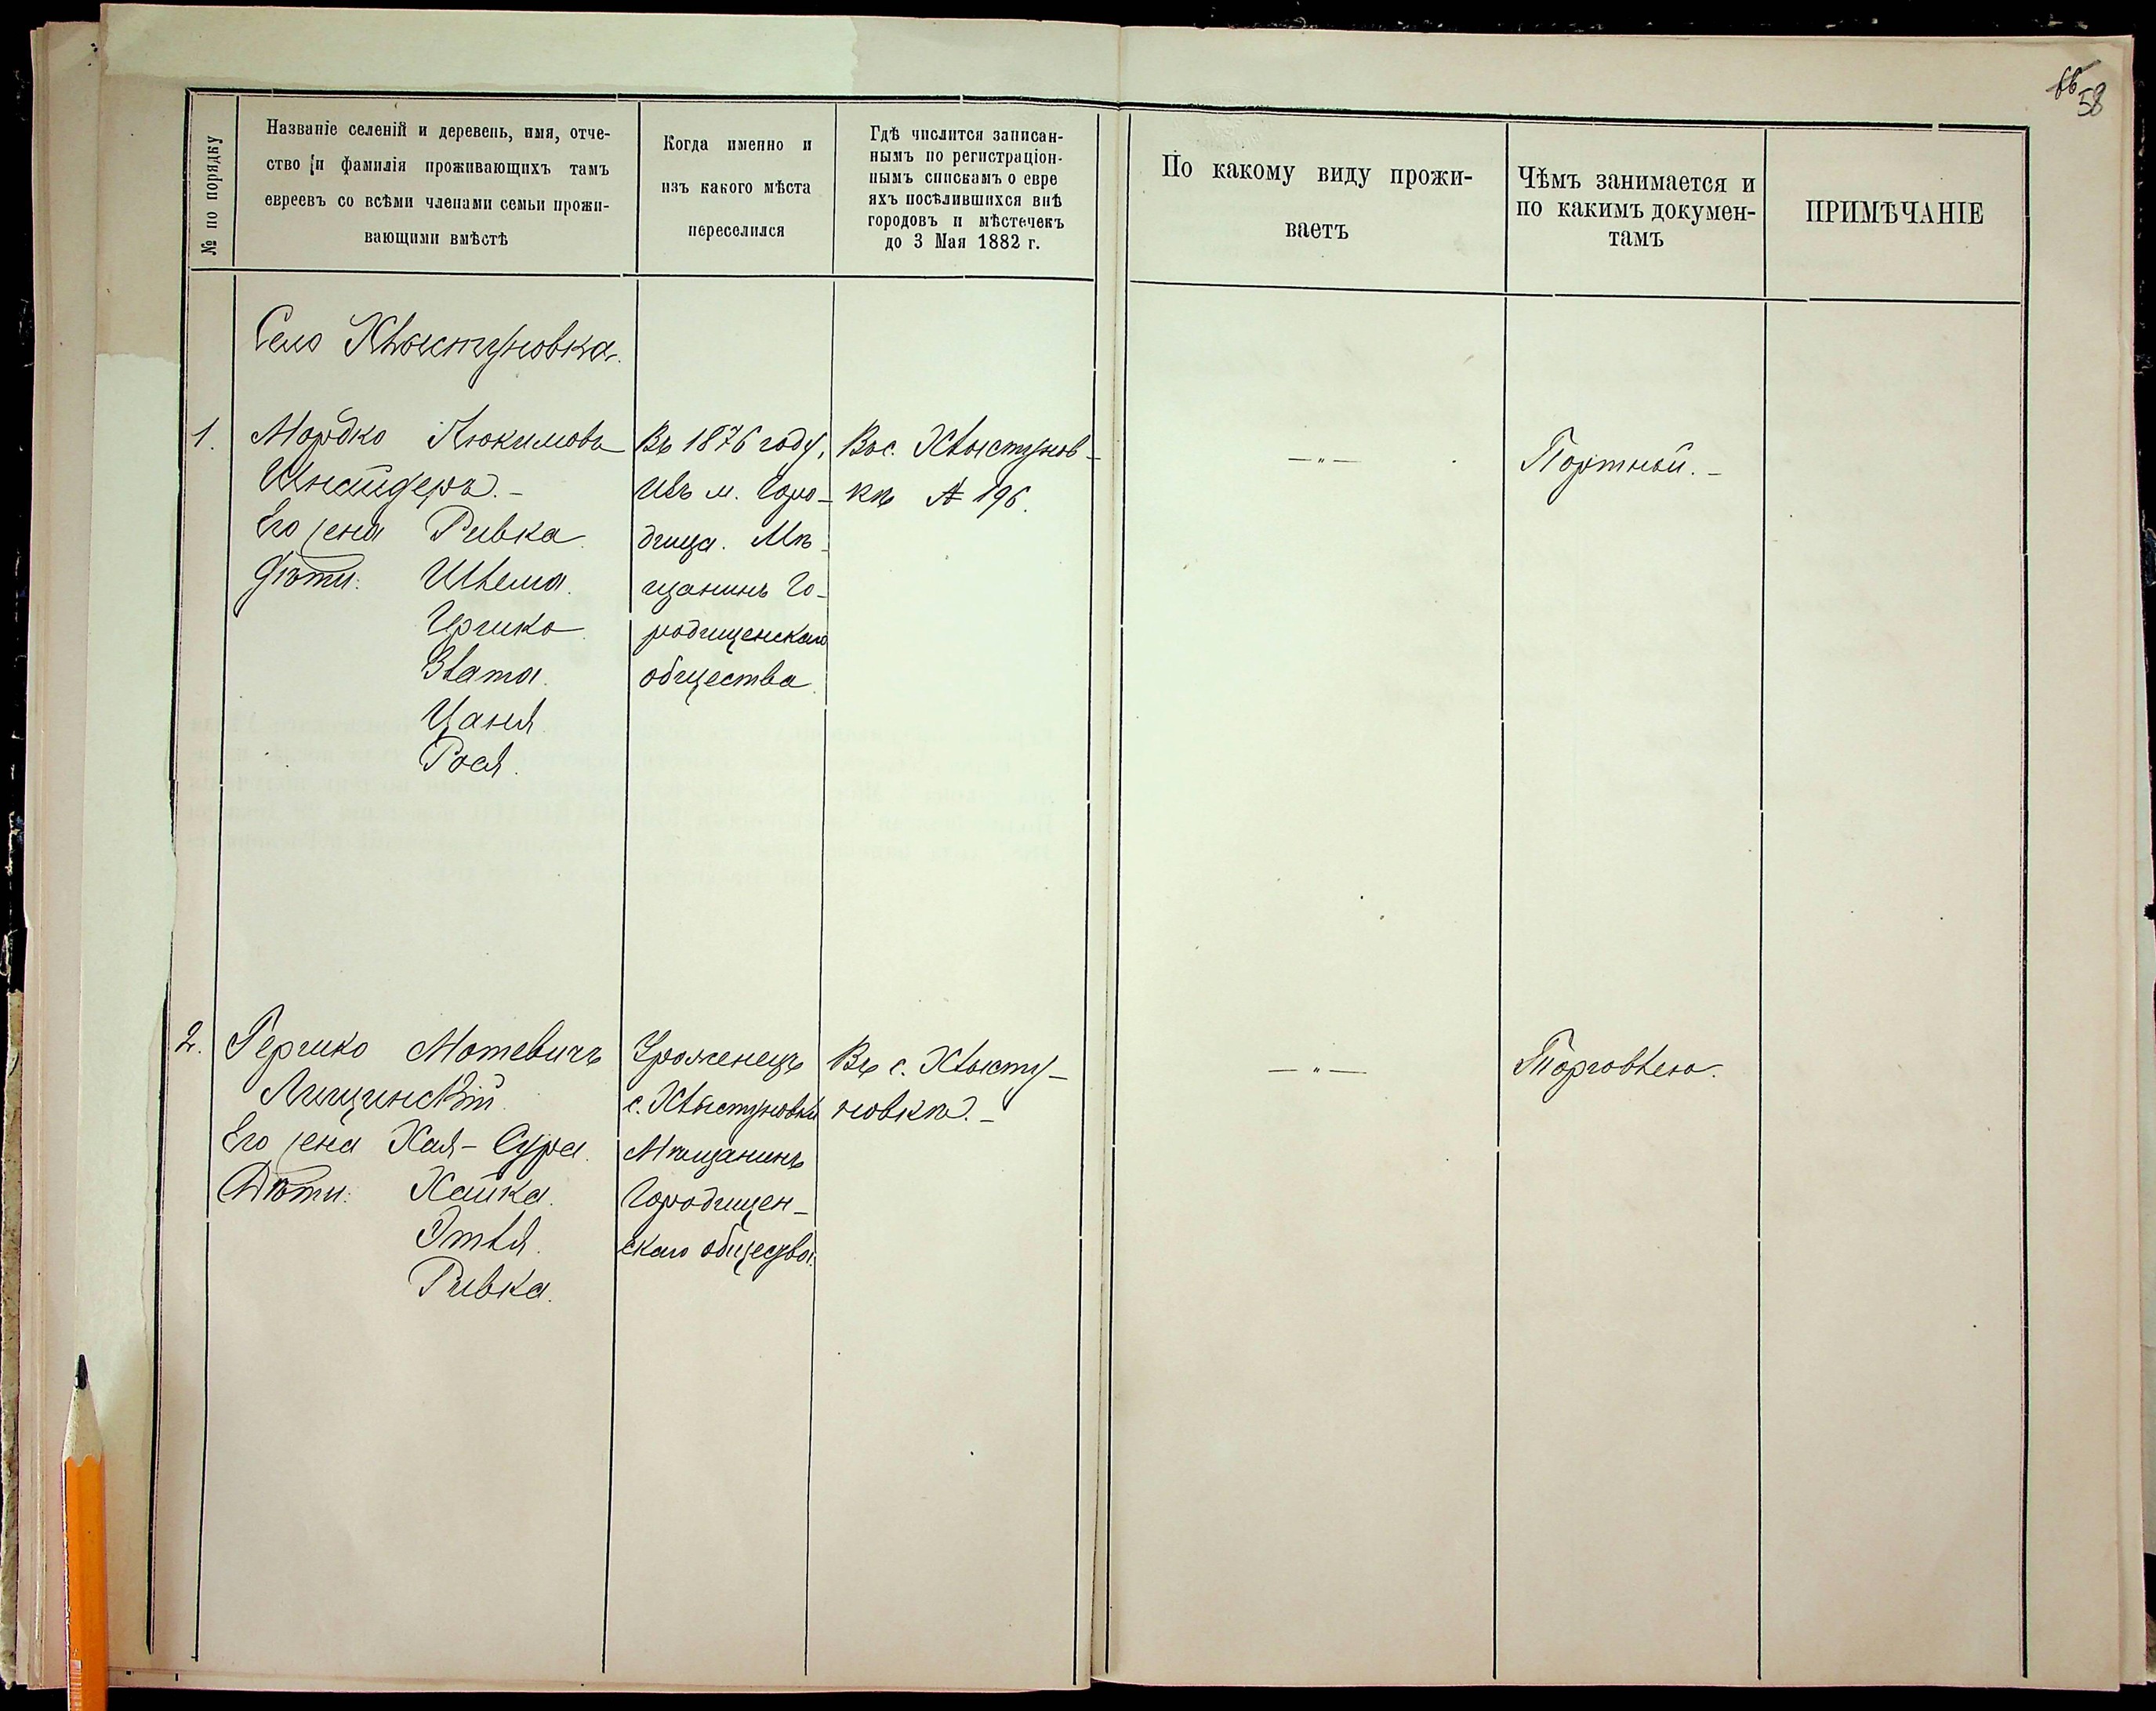 66 58
№ по порядку
Названіе селеній и деревень, имя, отче-
ство и фамилія проживающихъ тамъ
евреевъ со всѣми членами семьи прожи-
вающими вмѣстѣ
Когда именно и
изъ какого мѣста
переселился
Гдѣ числится записан-
нымъ по регистраціон-
нымъ спискамъ о евре
яхъ посѣлившихся внѣ
городовъ и мѣстечекъ
до 3 Мая 1882 г.
По какому виду прожи-
ваетъ
Чѣмъ занимается и
по какимъ докумен-
тамъ
ПРИМѢЧАНІЕ
Село Хлыстуновка.
1. Мордко Люкимовъ
Шнайдеръ.-
Его жена Ривка.
Дѣти: Шлема.
Гершко.
Злата.
Цаня
Рося.
Въ 1876 году,
Изъ м. Горо-
дища. Мѣ-
щанинъ Го-
родищенскаго
общества.
Въ с. Хлыстунов-
кѣ № 196.
—„—
Портной.-
2. Гершко Мотевичъ
Лищинскій.
Его жена Хая-Сура.
Дѣти: Хайка.
Этля.
Ривка.
Уроженецъ
с. Хлыстуновки
Мѣщанинъ
Городищен-
скаго общества.
Въ с. Хлысту-
новкѣ.-
—„—
Торговлею.